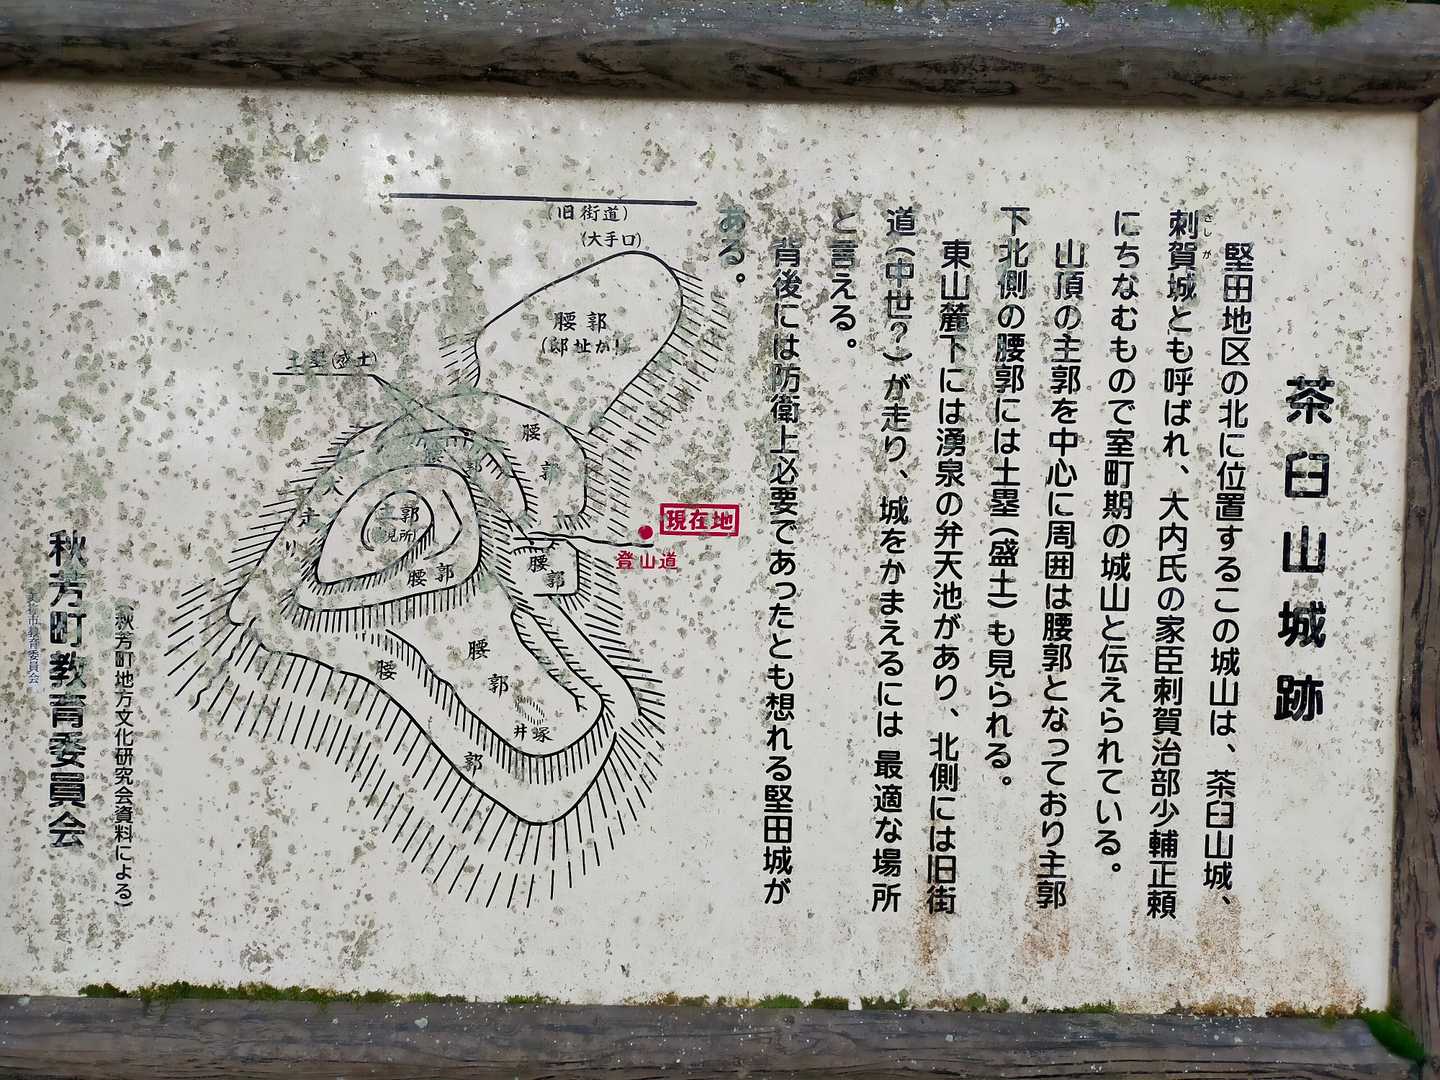 茶臼山城跡
堅田地区の北に位置するこの城山は、茶臼山城、
さしが
刺賀城とも呼ばれ、大内氏の家臣刺賀治部少輔正頼
にちなむもので室町期の城山と伝えられている。
山頂の主郭を中心に周囲は腰郭となっており主郭
下北側の腰郭には土塁(盛土)も見られる。
東山麓下には湧泉の弁天池があり、北側には旧街
道(中世?)が走り、城をかまえるには最適な場所
と言える。
背後には防衛上必要であったとも想れる堅田城が
ある。
(旧街道)
(大手口)
腰郭
(邸址か)
土塁(盛土)
腰郭
腰郭
犬走り
主郭
見所)
腰郭
腰郭
現在地
登山道
腰郭
腰郭
井塚
(秋芳町地方文化研究会資料による)
秋芳町教育委員会
市教育委員会